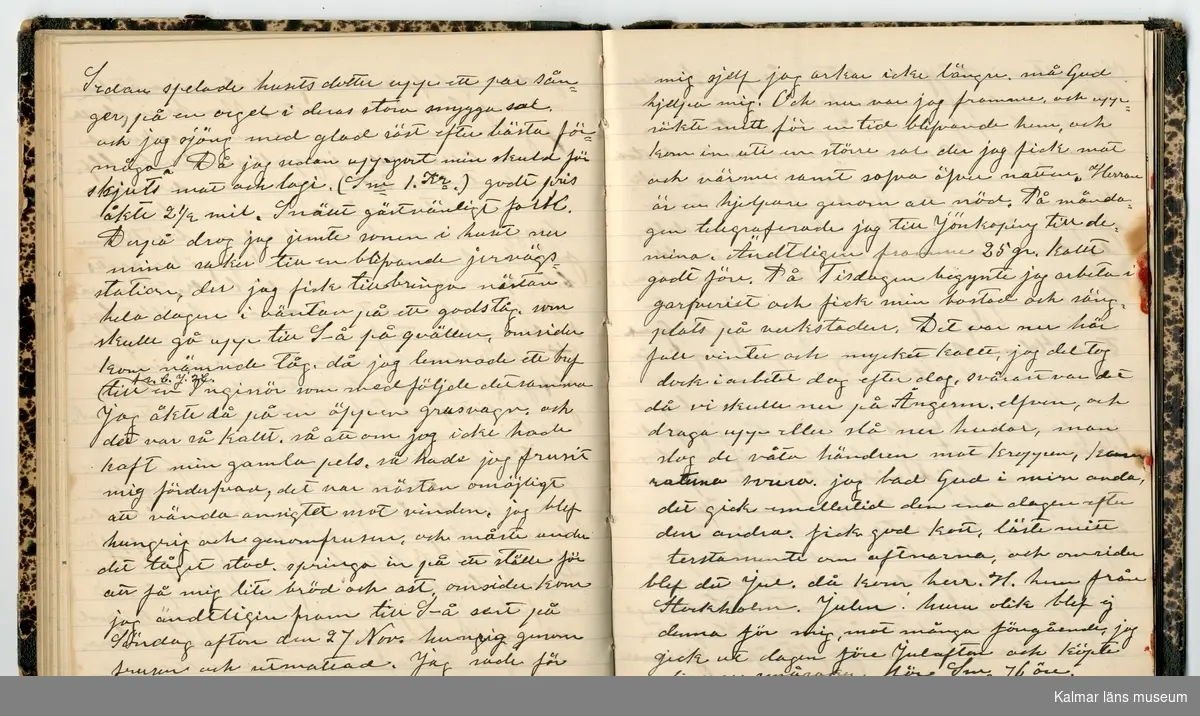 Sedan spelade husets dotter upp ett par sån-
ger, på en orgel i deras stora snygga sal.
och jag sjöng med glad röst efter bästa för-
måga. Då jag sedan uppgort min skuld för
skjuts mat och logi. (Sm 1. Kr.) godt pris
åkte 2 1/2 mil. Snällt gästvänligt folk.
Derpå drog jag jemte sonen i huset ner
mina saker till en blifvande jernvägs-
station, der jag fick tillbringa nästan
hela dagen i väntan på ett godståg, som
skulle gå upp till S-å på qvällen, omsider
kom nämnde tåg. då jag lemnade ett bref
till en Inginör som med följde det samma
Jag åkte då på en öppen grusvagn. och
det var så kallt. så att om jag icke hade
haft min gamla pels. så hade jag frusit
mig förderfvad, det var nästan omöjligt
att vända ansigtet mot vinden. jag blef
hungrig och genomfrusen, och måste under
det tåget stod. springa in på ett ställe för
att få mig lite bröd och ost, omsider kom
jag ändtligen fram till S-å sent på
Söndag afton den 27 Nov. hungrig genom
frusen och utmattad. Jag sade för
mig sjelf jag orkar icke längre. må Gud
hjelpa mig. Och nu var jag framme. och upp-
sökte mitt för en tid blifvande hem, och
kom in uti en större sal der jag fick mat
och värme samt sofva öfver natten. Herran
är en hjelpare genom all nöd. På månda-
gen telegraferade jag till Jönköping till de-
mina. Ändtligen framme 25 gr. kallt
godt före. På Tisdagen begynte jag arbeta i
garfveriet och fick min bostad och säng-
plats på verkstaden. Det var nu här
full vinter och mycket kallt, jag deltog
dock i arbetet dag efter dag, svårast var det
då vi skulle ner på Ångerm. elfven, och
draga upp eller slå ner hudar, man
slog de våta händren mot kroppen, kam
raterna svuro. jag bad Gud i min anda,
det gick emellertid den ena dagen efter
den andra. fick god kost, läste mitt
testamente om aftnarna, och omsider
blef det Jul. då kom herr. H. hem från
Stockholm. Julen! huru olik blef ej
denna för mig, mot många föregående, jag
gick ut dagen före Julafton och köpte
småsaker för Sm 76 öre.
Kalmar läns museum